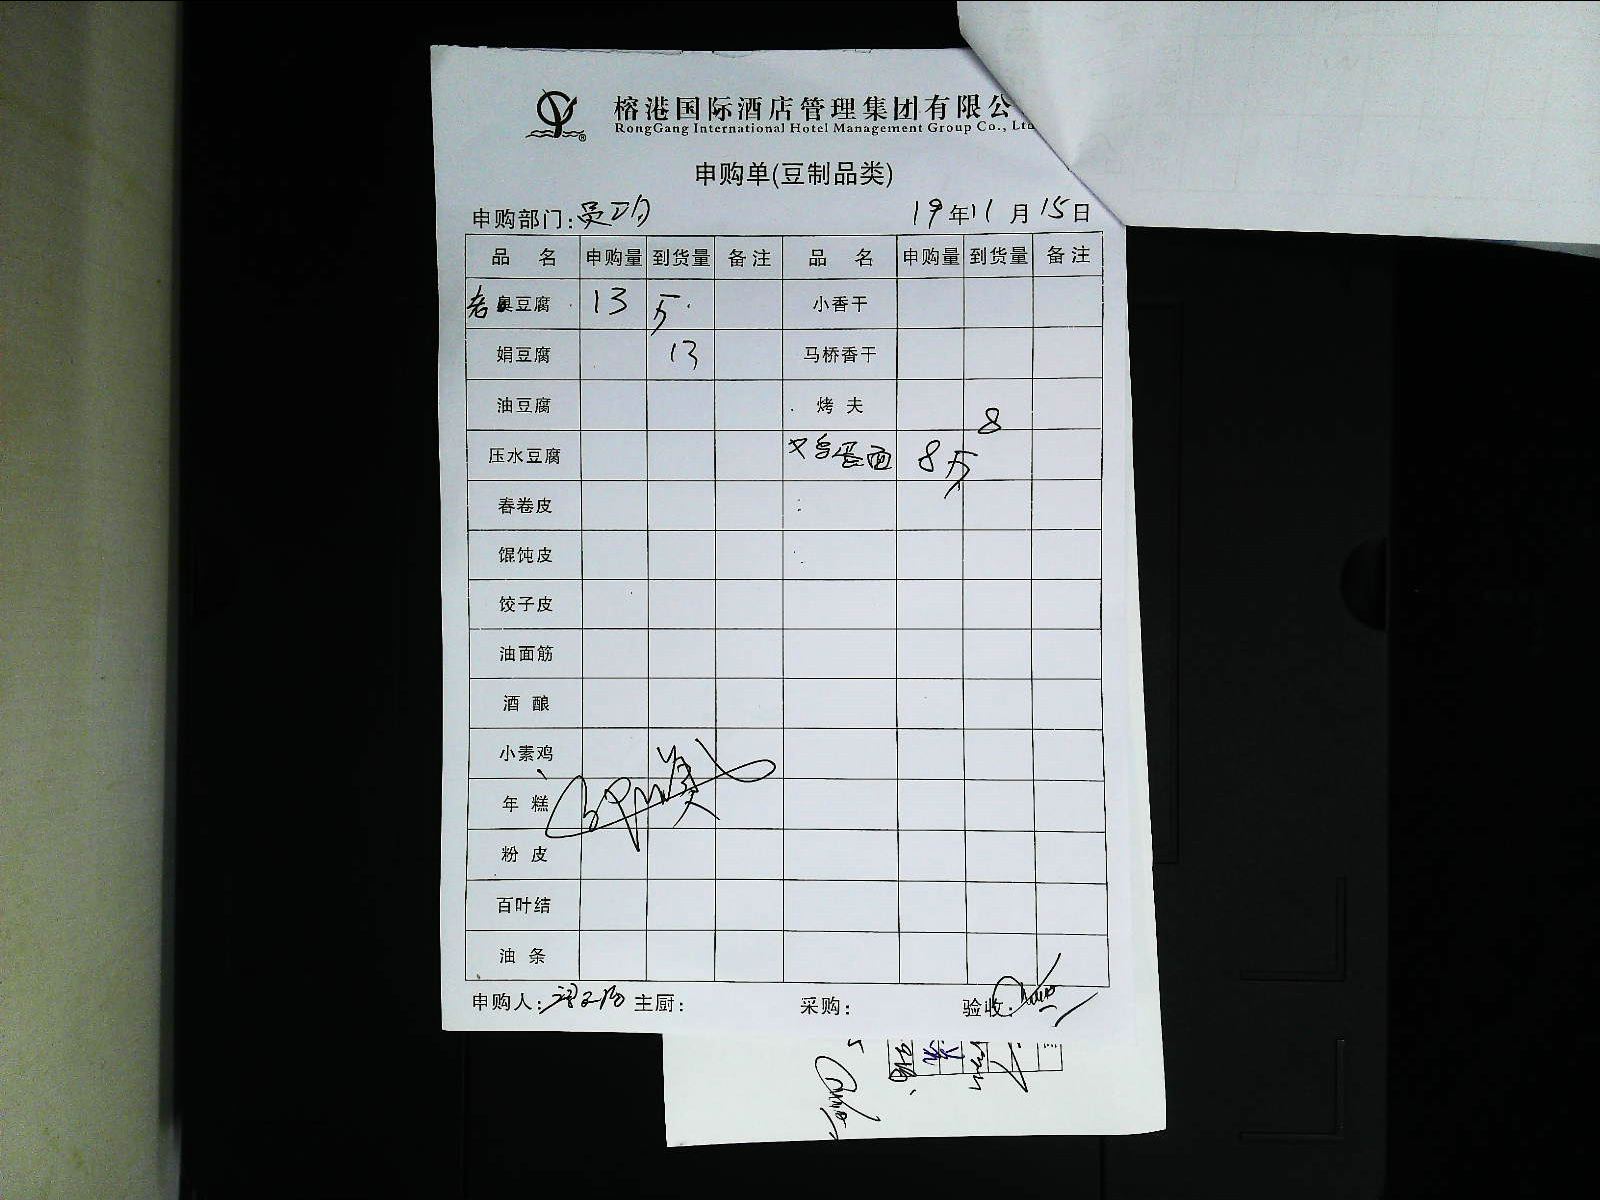 榕港国际酒店管理集团有限公
RongGang International Hotel Management Group Co., Ltd
申购单(豆制品类)
申购部门: 19年11月15日
品 名 申购量 到货量 备注 品 名 申购量 到货量 备注
老臭豆腐 13 斤 小香干
娟豆腐 13 马桥香干
油豆腐 烤 夫 8
压水豆腐 鸡蛋面 8斤
春卷皮
馄饨皮
饺子皮
油面筋
酒 酿
小素鸡
年 糕
粉 皮
百叶结
油 条
申购人: 主厨: 采购: 验收: